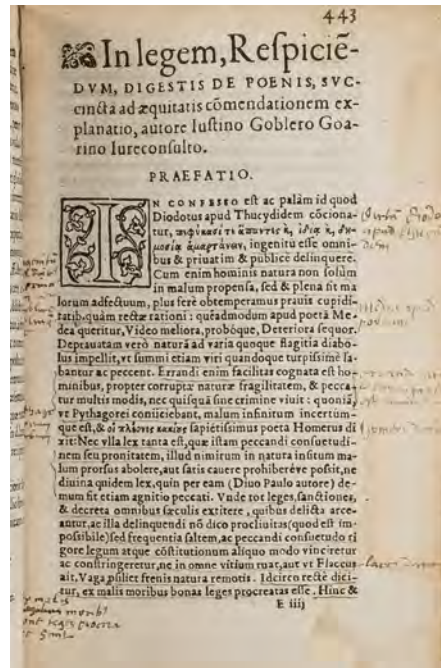 443
In legem, Respiciē-
DVM, DIGESTIS DE POENIS, SVC-
cincta ad æquitatis cōmendationem ex-
planatio, autore Iustino Goblero Goa-
rino Iureconsulto.
PRAEFATIO.
IN CONFESSO est ac palàm id quod
Diodotus apud Thucydidem cōciona-
tur, πεφύκασί τι ἅπαντες κ̀, ἰδίᾳ κ̀, δη-
μοσίᾳ ἁμαρτάνειν, ingenitū esse omni-
bus & priuatim & publicè delinquere.
Cum enim hominis natura non solùm
in malum propensa, sed & plena sit ma
lorum adfectuum, plus ferè obtemperamus prauis cupidi-
tatib. quàm rectæ rationi: quēadmodum apud poetā Me-
dea queritur, Video meliora, probóque, Deteriora sequor.
Deprauatam verò naturā ad varia quoque flagitia diabo-
lus impellit, vt summi etiam viri quandoque turpissimè la-
bantur ac peccent. Errandi enim facilitas cognata est ho-
minibus, propter corruptæ naturæ fragilitatem, & pecca-
tur multis modis, nec quisquā sine crimine viuit: quoniā,
vt Pythagorei coniiciebant, malum infinitum incertúm-
que est, & οἱ πλέονες κακίους sapiētissimus poeta Homerus di
xit: Nec vlla lex tanta est, quæ istam peccandi consuetudi-
nem seu pronitatem, illud nimirum in natura insitum ma-
lum prorsus abolere, aut satis cauere prohiberéve possit, ne
diuina quidem lex, quin per eam (Diuo Paulo autore) de-
mum fit etiam agnitio peccati. Vnde tot leges, sanctiones,
& decreta omnibus sæculis extitere, quibus delicta arce-
antur, ac illa delinquendi nō dico procliuitas (quod est im-
possibile) sed frequentia saltem, ac peccandi consuetudo ri
gore legum atque cōstitutionum aliquo modo vinciretur
ac constringeretur, ne in omne vitium ruat, aut vt Flaccus
ait, Vaga prosiliet frenis natura remotis. Idcirco rectè dici-
tur, ex malis moribus bonas leges procreatas esse. Hinc &
E iiij